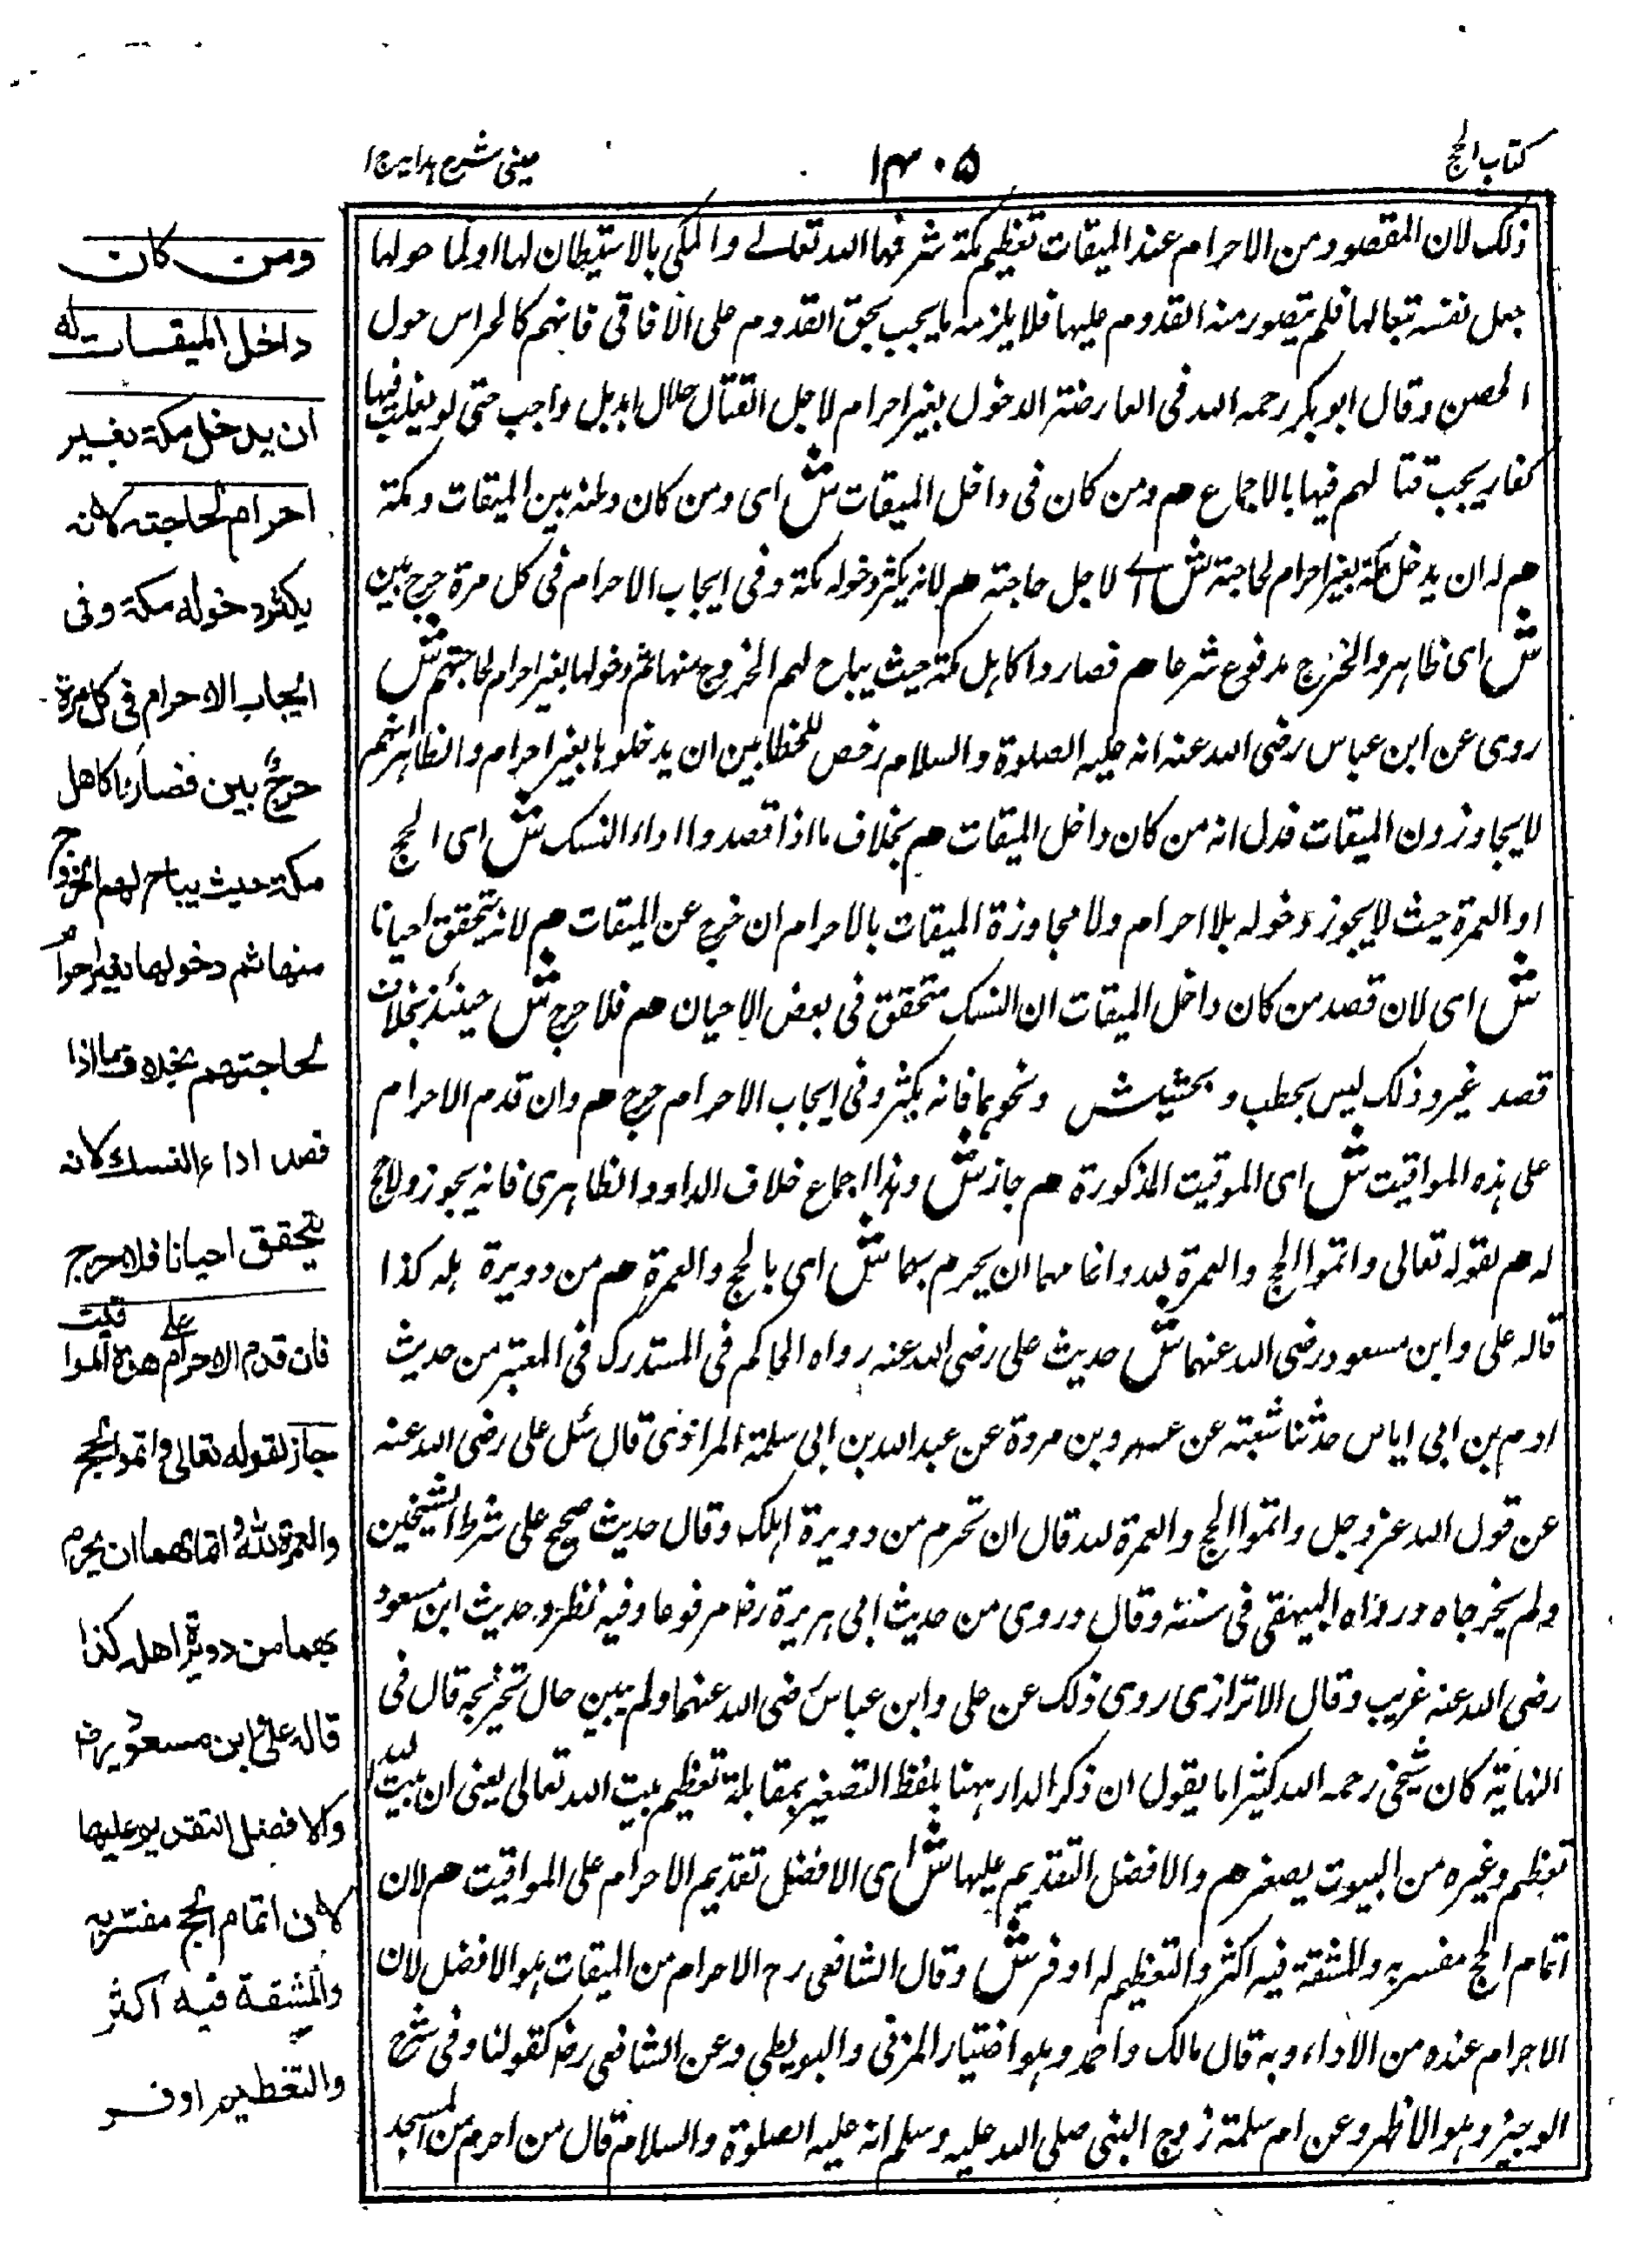 كتاب الحج
١٤٠٥
عينى شرح هدايه ج ١
ذلك لان المقصود من الاحرام عند الميقات تعظيم مكة شرفها الله تعالے والمكى بالاستيطان لها او لما حولها
جعل نفسه تبعا لها فلم يتصور منه القدوم عليها فلا يلزمه ما يجب بحق القدوم على الآفاقى فانهم كالحراس حول
الحصن وقال ابو بكر رحمه الله فى العارضة الدخول بغير احرام لاجل القتال حلال ابد بل واجب حتى لو يغلب فيها
كفار يجب قتالهم فيها بالاجماع هم ومن كان فى داخل الميقات ش اى ومن كان وطنه بين الميقات ومكة
هم له ان يدخل مكة بغير احرام لحاجته ش اے لاجل حاجته هم لانه يكثر دخوله مكة وفى ايجاب الاحرام فى كل مرة حرج بين
ش اى ظاهر والحرج مدفوع شرعا هم فصاروا كاهل مكة حيث يباح لهم الخروج منها ثم دخولها بغير احرام لحاجتهم ش
روى عن ابن عباس رضى الله عنه انه عليه الصلوة والسلام رخص للحطابين ان يدخلوها بغير احرام والظاهر انهم
لا يجاوزون الميقات فدل انه من كان داخل الميقات هم بخلاف ما اذا قصدوا اداء النسك ش اى الحج
او العمرة حيث لا يجوز دخوله بلا احرام ولا مجاوزة الميقات بالاحرام ان خرج عن الميقات هم لانه يتحقق احيانا
ش اى لان قصد من كان داخل الميقات ان النسك متحقق فى بعض الاحيان هم فلا حرج ش حينئذ بخلاف
قصد غير وذلك ليس بحطب و بحشيش ونحوهما فانه يكثر وفى ايجاب الاحرام حرج هم وان قدم الاحرام
على هذه المواقيت ش اى الموقيت المذكورة هم جاز ش وهذا اجماع خلاف الداود الظاهرى فانه يجوز ولا حج
له هم لقوله تعالى واتموا الحج والعمرة لله واتمامهما ان يحرم بهما ش اى بالحج والعمرة هم من دويرة اهله كذا
قاله على وابن مسعود رضى الله عنهما ش حديث على رضى الله عنه رواه الحاكم فى المستدرك فى المعتبر من حديث
ادم بن ابى اياس حدثنا شعبته عن عمرو بن مرة عن عبد الله بن ابى سلمة المراذى قال سئل على رضى الله عنه
عن قول الله عز وجل واتموا الحج والعمرة لله قال ان تحرم من دويرة اهلك وقال حديث صحيح على شرط الشيخين
ولم يخرجاه ورواه البيهقى فى سننه وقال وروى من حديث ابى هريرة رضه مرفوعا وفيه نظر وحديث ابن مسعود
رضى الله عنه غريب وقال الاترازى روى ذلك عن على وابن عباس رضى الله عنهما ولم يبين حال تخريجه قال فى
النهاية كان شيخى رحمه الله كثيرا ما يقول ان ذكر الدار ههنا بلفظ التصغير بمقابلة تعظيم بيت الله تعالى يعنى ان بيت الله
تعظم وغيره من البيوت يصغر هم والافضل التقديم عليها ش اى الافضل تقديم الاحرام على المواقيت هم لان
اتمام الحج مفسر به والمشقة فيه اكثر والتعظيم له اوفر ش وقال الشافعى رح الاحرام من الميقات هو الافضل لان
الاحرام عنده من الاداء وبه قال مالك واحمد وهو اختيار المزنى والبويطى وعن الشافعى رضه كقولنا وفى شرح
الوجيز وهو الاظهر وعن ام سلمة زوج النبى صلى الله عليه وسلم انه عليه الصلوة والسلام قال من احرم من المسجد
ومن كان
داخل الميقات له
ان يدخل مكة بغير
احرام لحاجته لانه
يكثر دخوله مكة وفى
ايجاب الاحرام فى كل مرة
حرج بين فصار كاهل
مكة حيث يباح لهم الخروج
منها ثم دخولها بغير احرام
لحاجتهم بخلاف ما اذا
قصد اداء النسك لانه
يتحقق احيانا فلا حرج
فان قدم الاحرام على هذه المواقيت
جاز لقوله تعالى واتموا الحج
والعمرة لله واتمامهما ان يحرم
بهما من دويرة اهله كذا
قاله على وابن مسعود رض
والافضل التقديم عليها
لان اتمام الحج مفسر به
والمشقة فيه اكثر
والتعظيم اوفر